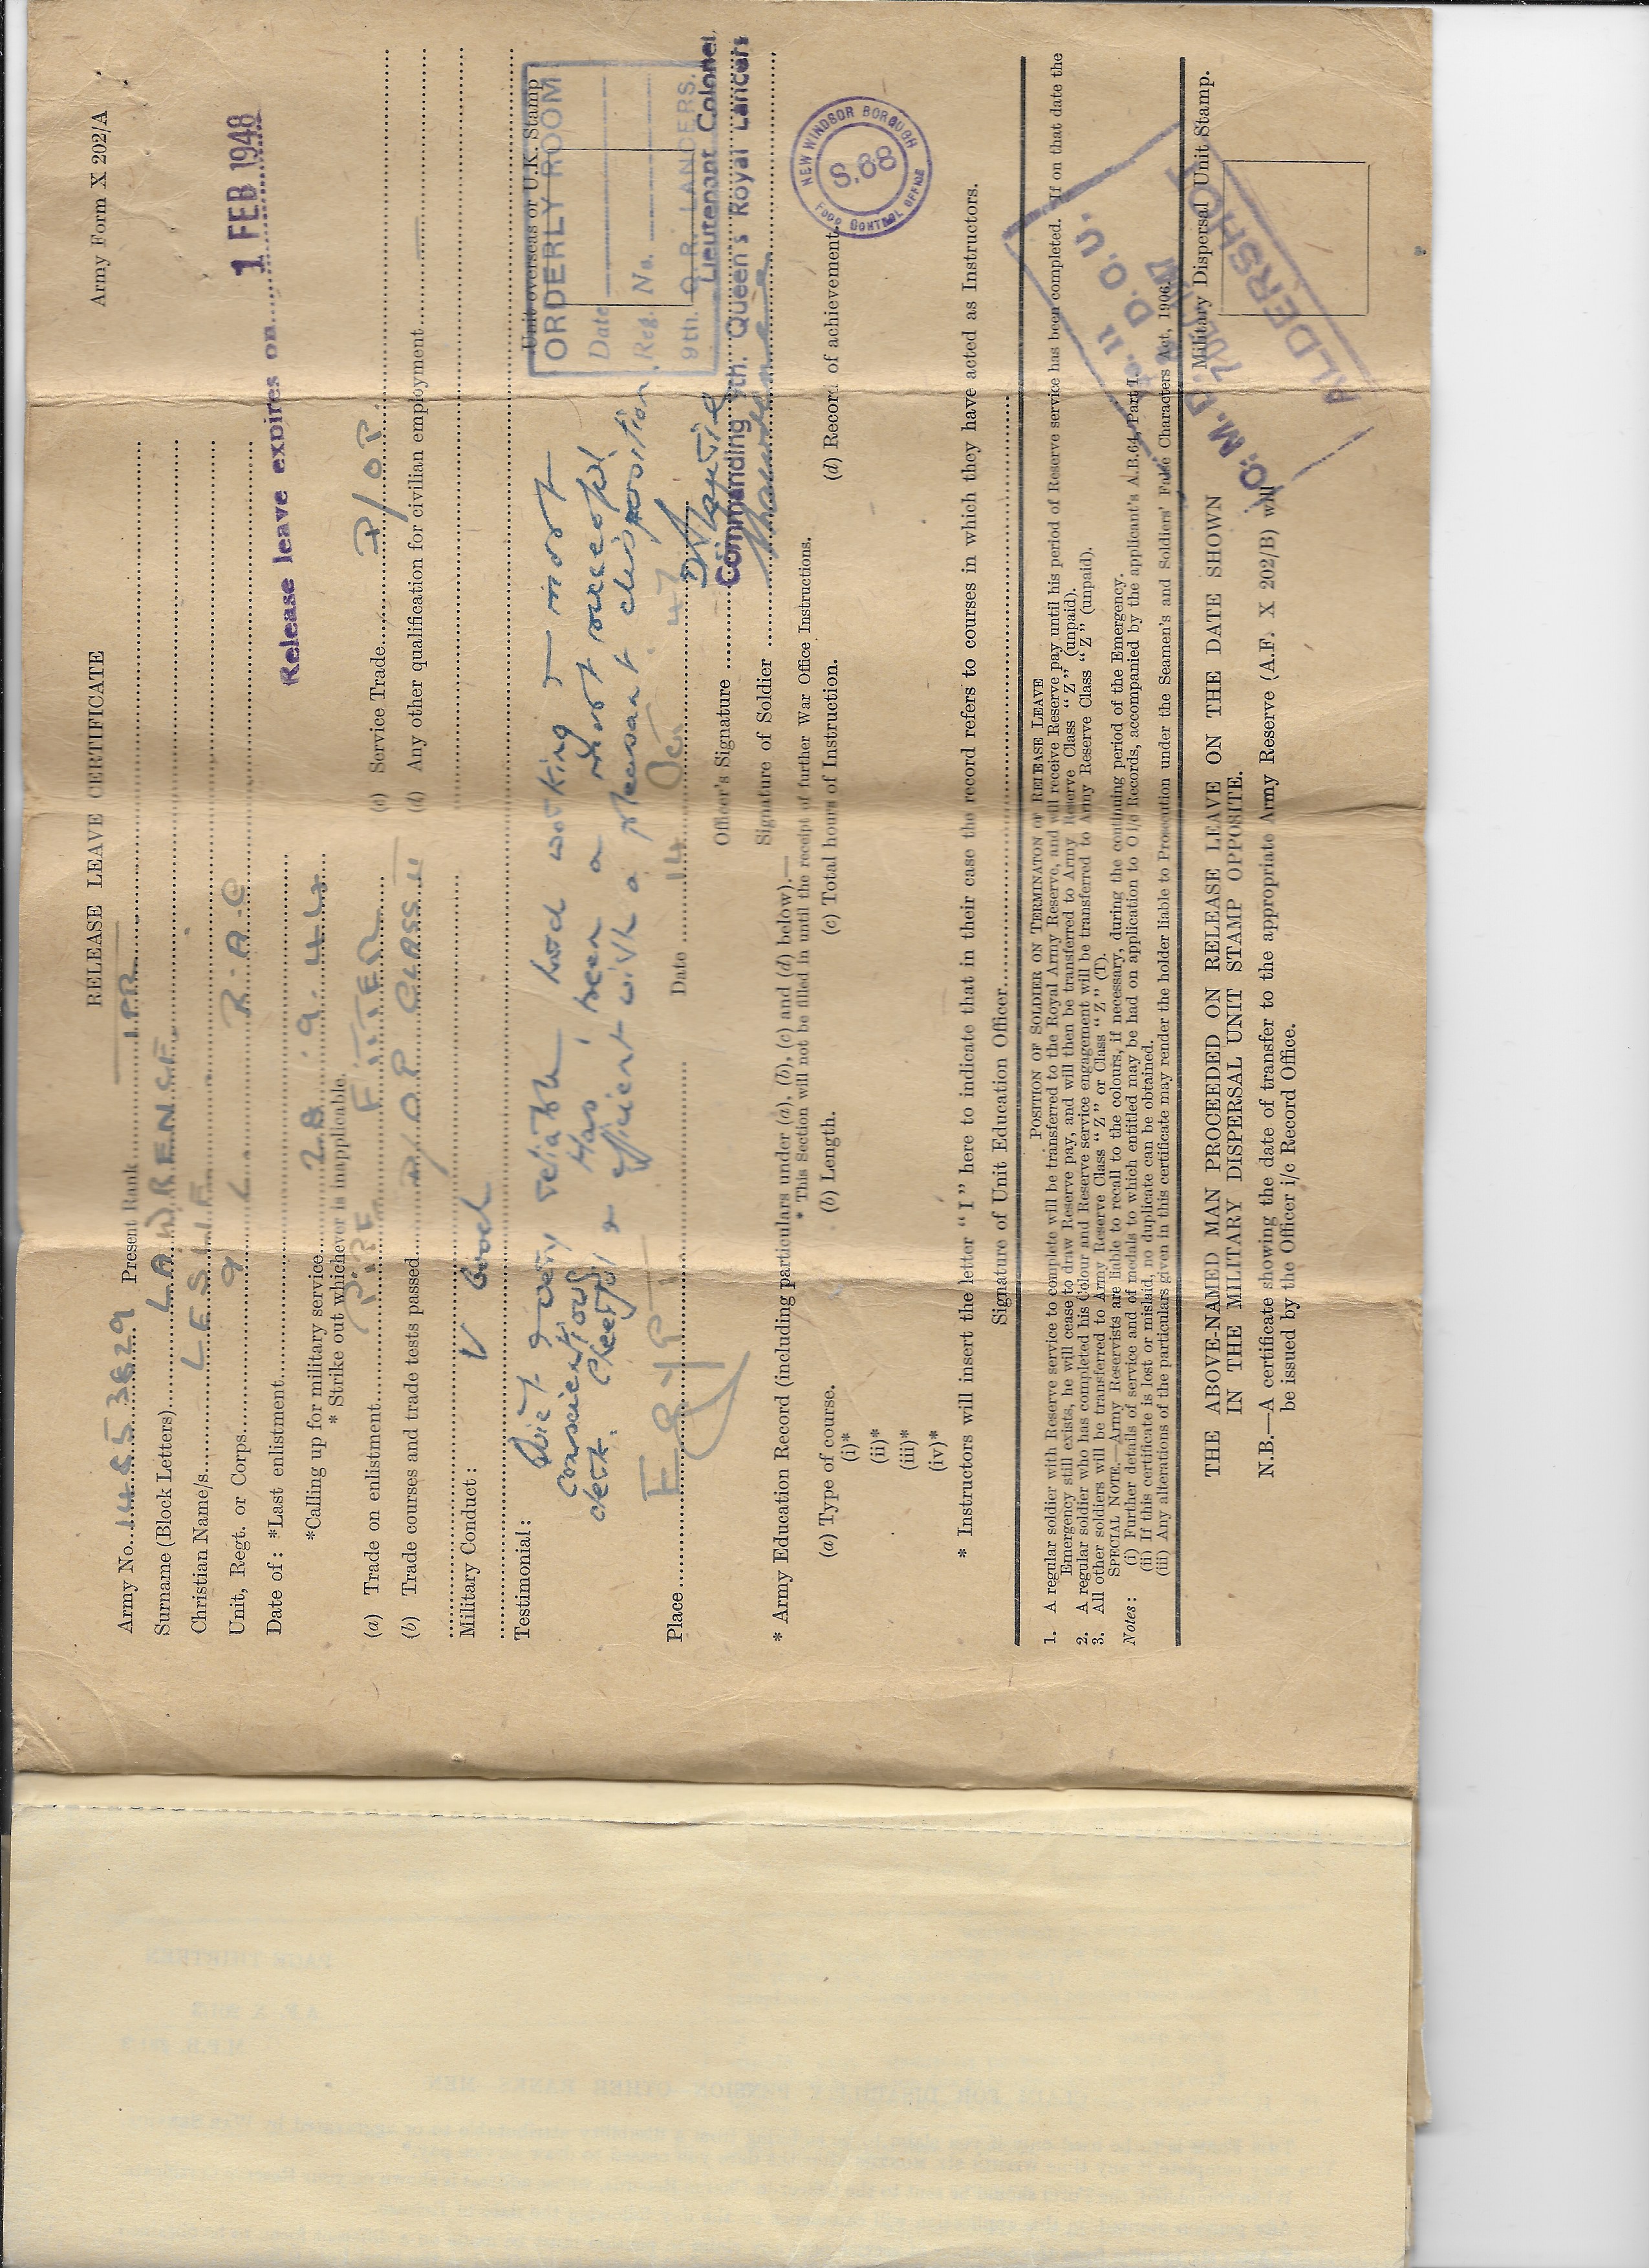 RELEASE LEAVE CERTIFICATE
Army Form X 202/A
Army No. 14853829 Present Rank TPR
Surname (Block Letters) LAWRENCE.
Christian Name/s LESLIE
Unit, Regt. or Corps 9 L R.A.C
1 FEB 1948
Release leave expires on
Date of: *Last enlistment
*Calling up for military service 28.9.44
* Strike out whichever is inapplicable.
(a) Trade on enlistment PIPE FITTER
(c) Service Trade D/OP.
(b) Trade courses and trade tests passed D/OP CLASS II
(d) Any other qualification for civilian employment —
Military Conduct: V Good
Testimonial: Quiet & very reliable hard working & most
conscientious Has been a most successful
clerk. Cheerful & efficient with a pleasant disposition.
Unit overseas or U.K. Stamp
ORDERLY ROOM
Date
Reg. No.
9th. Q.R. LANCERS.
Place Egypt. Date 14 Oct 47
Officer's Signature
Lieutenant Colonel.
Commanding 9th. Queen's Royal Lancers
Signature of Soldier Lawrence
* Army Education Record (including particulars under (a), (b), (c) and (d) below).—
* This Section will not be filled in until the receipt of further War Office Instructions.
(a) Type of course. (b) Length. (c) Total hours of Instruction. (d) Record of achievement.
(i)*
(ii)*
(iii)*
(iv)*
NEW WINDSOR BOROUGH
S.68
FOOD CONTROL OFFICE
* Instructors will insert the letter "I" here to indicate that in their case the record refers to courses in which they have acted as Instructors.
Signature of Unit Education Officer
POSITION OF SOLDIER ON TERMINATON OF RELEASE LEAVE
1. A regular soldier with Reserve service to complete will be transferred to the Royal Army Reserve, and will receive Reserve pay until his period of Reserve service has been completed. If on that date the
Emergency still exists, he will cease to draw Reserve pay, and will then be transferred to Army Reserve Class "Z" (unpaid).
2. A regular soldier who has completed his Colour and Reserve service engagement will be transferred to Army Reserve Class "Z" (unpaid).
3. All other soldiers will be transferred to Army Reserve Class "Z" or Class "Z" (T).
SPECIAL NOTE.—Army Reservists are liable to recall to the colours, if necessary, during the continuing period of the Emergency.
Notes: (i) Further details of service and of medals to which entitled may be had on application to O i/c Records, accompanied by the applicant's A.B.64, Part I.
(ii) If this certificate is lost or mislaid, no duplicate can be obtained.
(iii) Any alterations of the particulars given in this certificate may render the holder liable to Prosecution under the Seamen's and Soldiers' False Characters Act, 1906.
THE ABOVE-NAMED MAN PROCEEDED ON RELEASE LEAVE ON THE DATE SHOWN
IN THE MILITARY DISPERSAL UNIT STAMP OPPOSITE.
N.B.—A certificate showing the date of transfer to the appropriate Army Reserve (A.F. X 202/B) will
be issued by the Officer i/c Record Office.
Military Dispersal Unit Stamp.
No. 11
M. D. & D. O. U.
7 DEC 1947
ALDERSHOT